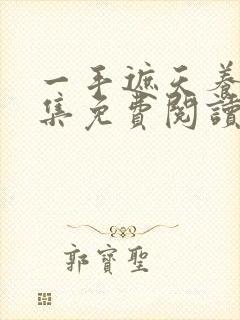 一手遮天養
集免費閱讀
郭寶聖